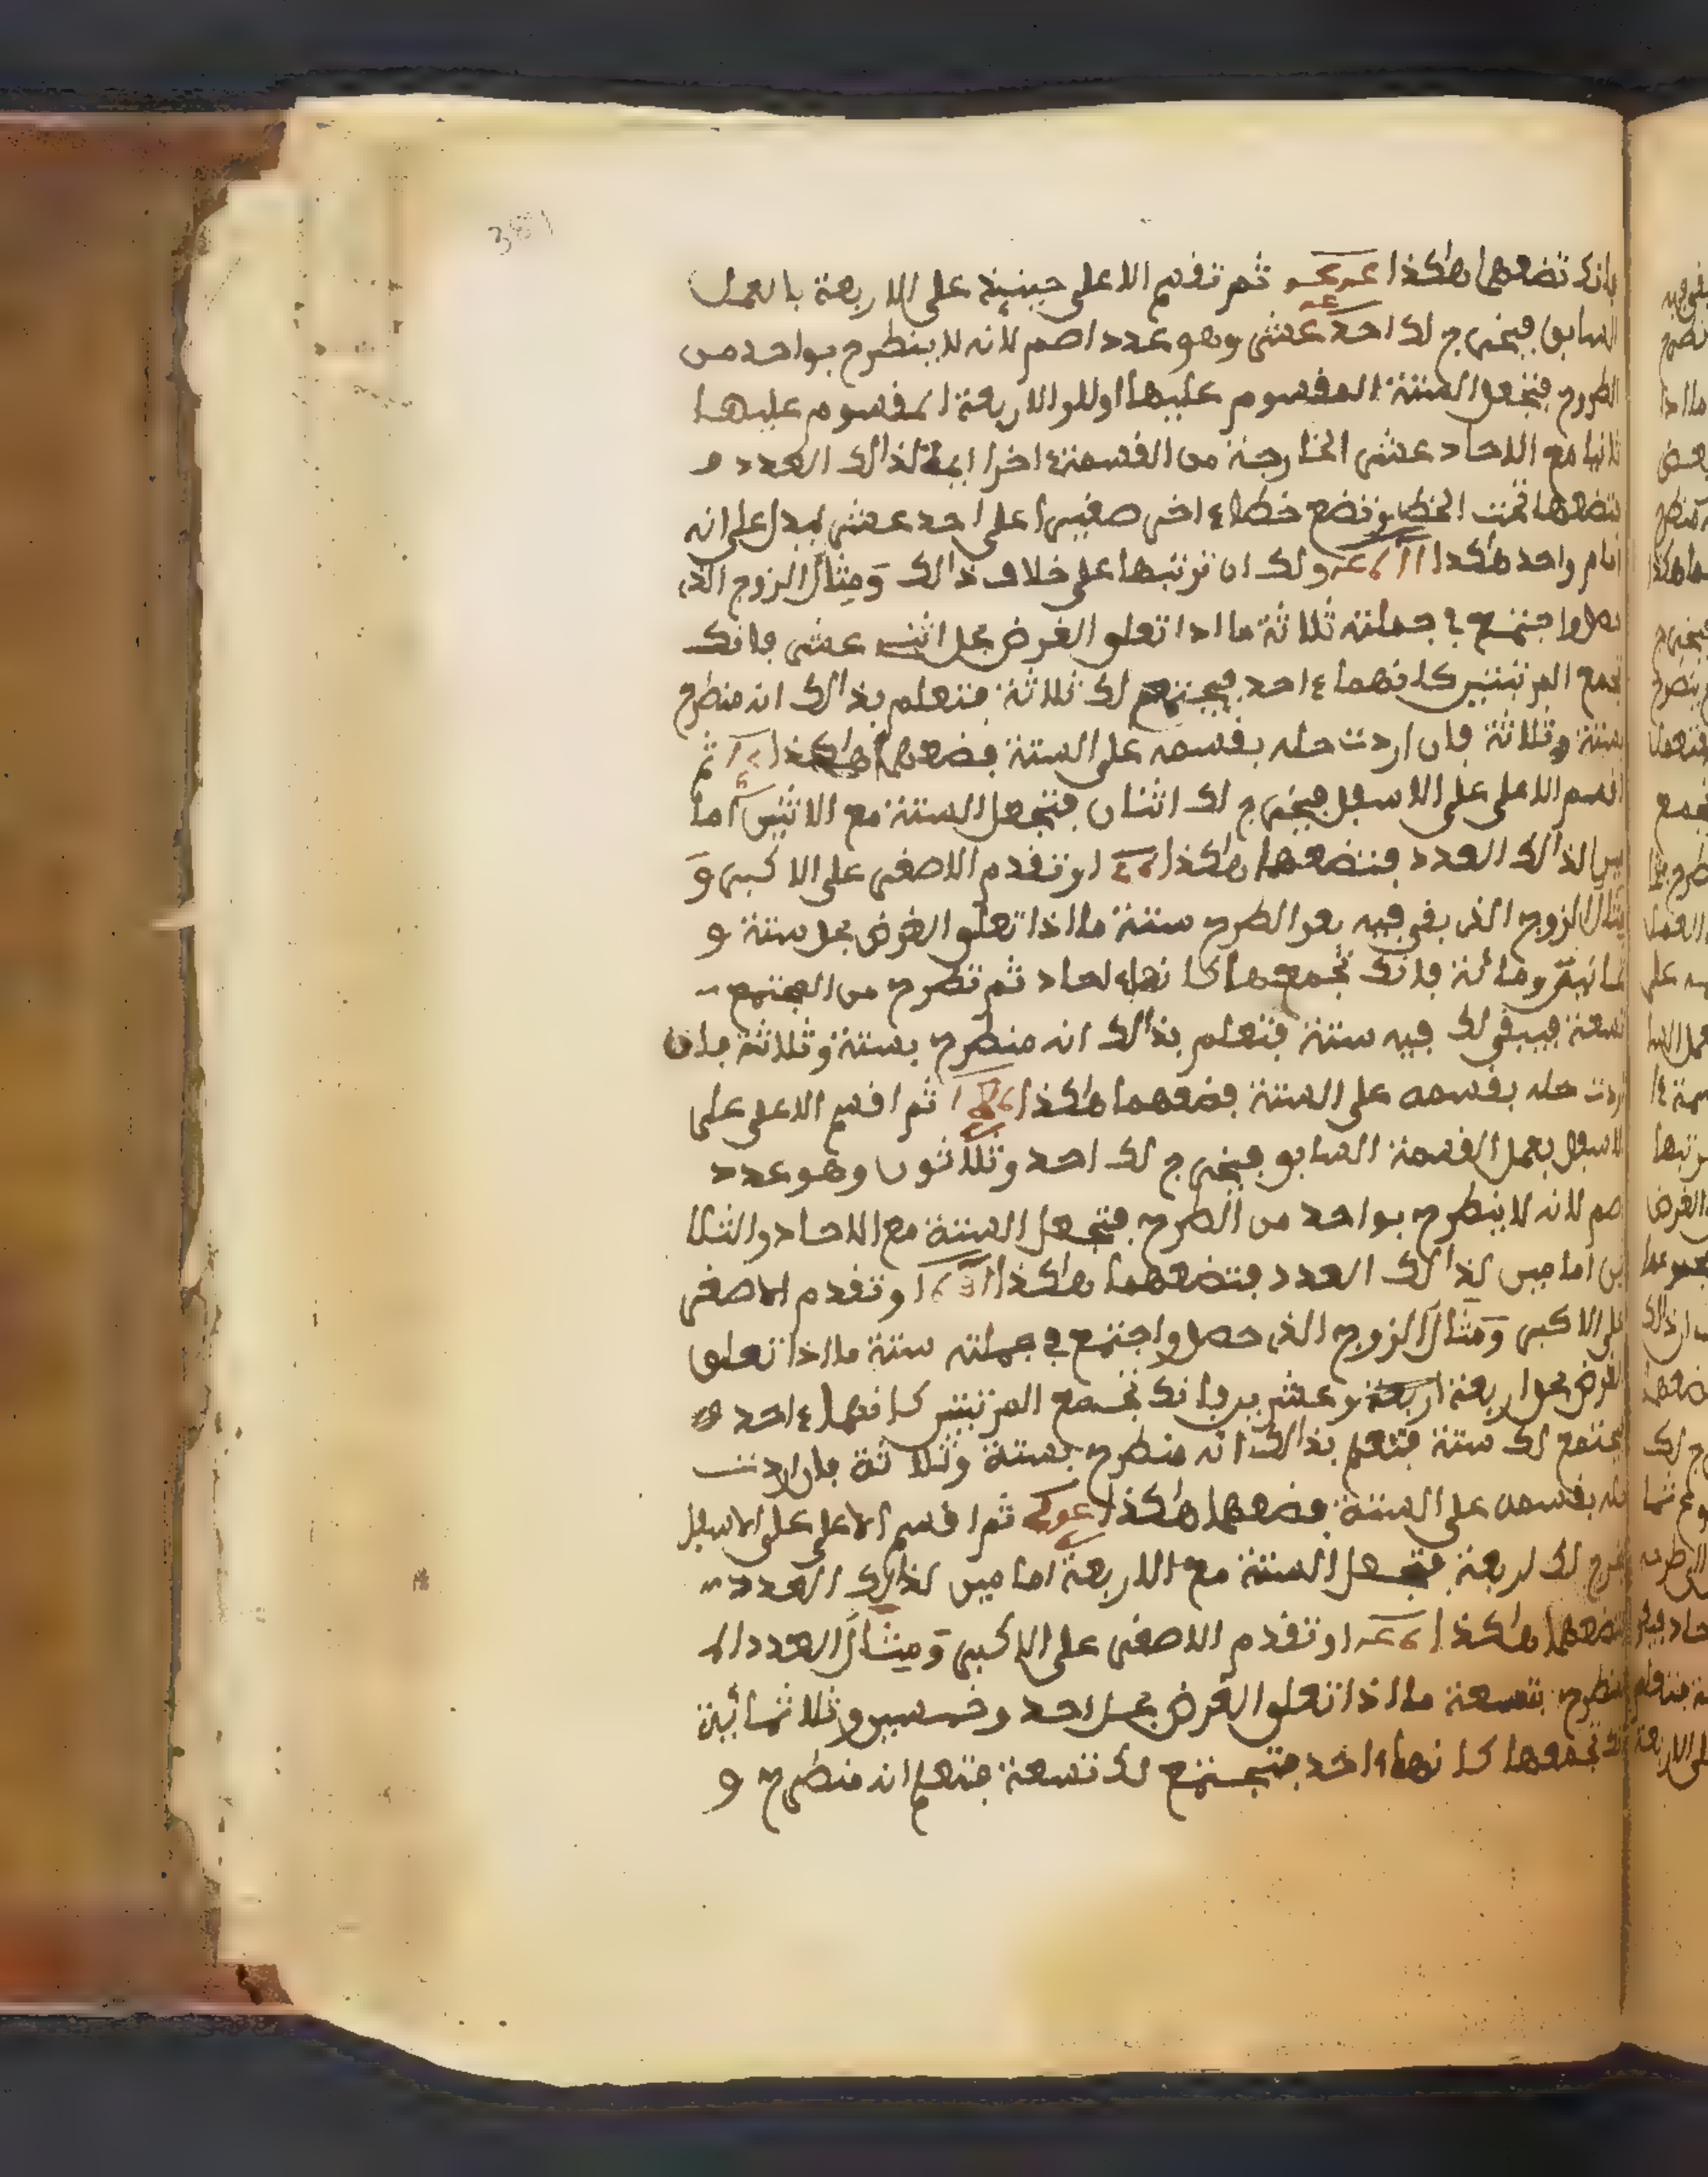 381
فانك تضعها هاكذا ثم تقسم الاعلى حينئذ على الاربعة بالعمل
السابق فيخرج لك احد عشر وهو عدد اصم لانه لا ينطرح بواحد من
الطروح فتجعل الستة المقسوم عليها اولا والاربعة المقسوم عليها
ثانيا مع الاحاد عشر الخارجة من القسمة اخرا ايمة لذالك العدد و
تضعها تحت الخط وتضع خطا ءاخر صغيرا على احد عشر ليدل على انه
امام واحد هاكذا ولك ان ترتبها على خلاف ذالك ومثال الزوج الذى
حصل واجتمع في جملته ثلاثة ما اذا تعلق الغرض بحل اثنى عشر فانك
تجمع المرتبتين كانهما ءاحد فيجتمع لك ثلاثة فتعلم بذالك انه منطرح
بستة وثلاثة فان اردت حله بقسمه على الستة فضعهما هاكذا ثم
اقسم الاعلى على الاسفل فيخرج لك اثنان فتجعل الستة مع الاثنين اما
مين لذالك العدد فتضعهما هاكذا او تقدم الاصغر على الاكبر و
مثال الزوج الذى بقى فيه بعد الطرح ستة ما اذا تعلق الغرض بحل ستة و
ثمانين ومائة فانك تجمعها كانها ءاحاد ثم تطرح من المجتمع
تسعة فيبقى لك فيه ستة فتعلم بذالك انه منطرح بستة وثلاثة فان
اردت حله بقسمه على الستة فضعهما هاكذا ثم اقسم الاعلى على
الاسفل بعمل القسمة السابق فيخرج لك احد وثلاثون وهو عدد
اصم لانه لا ينطرح بواحد من الطرح فتجعل الستة مع الاحاد والثلا
ثين امامين لذالك العدد فتضعهما هاكذا او تقدم الاصغر
على الاكبر ومثال الزوج الذى حصل واجتمع في جملته ستة ما اذا تعلق
الغرض بحل اربعة وعشرين فانك تجمع المرتبتين كانهما ءاحد
فيجتمع لك ستة فتعلم بذالك انه منطرح بستة وثلاثة فان اردت
حله بقسمه على الستة فضعهما هاكذا ثم اقسم الاعلى على الاسفل
فيخرج لك اربعة فتجعل الستة مع الاربعة امامين لذالك العدد
فتضعهما هاكذا او تقدم الاصغر على الاكبر ومثال العدد الم
نطرح بتسعة ما اذا تعلق الغرض بحل احد وخمسين وثلاثمائة
فانك تجمعها كانها ءاحد فيجتمع لك تسعة فتعلم انه منطرح و